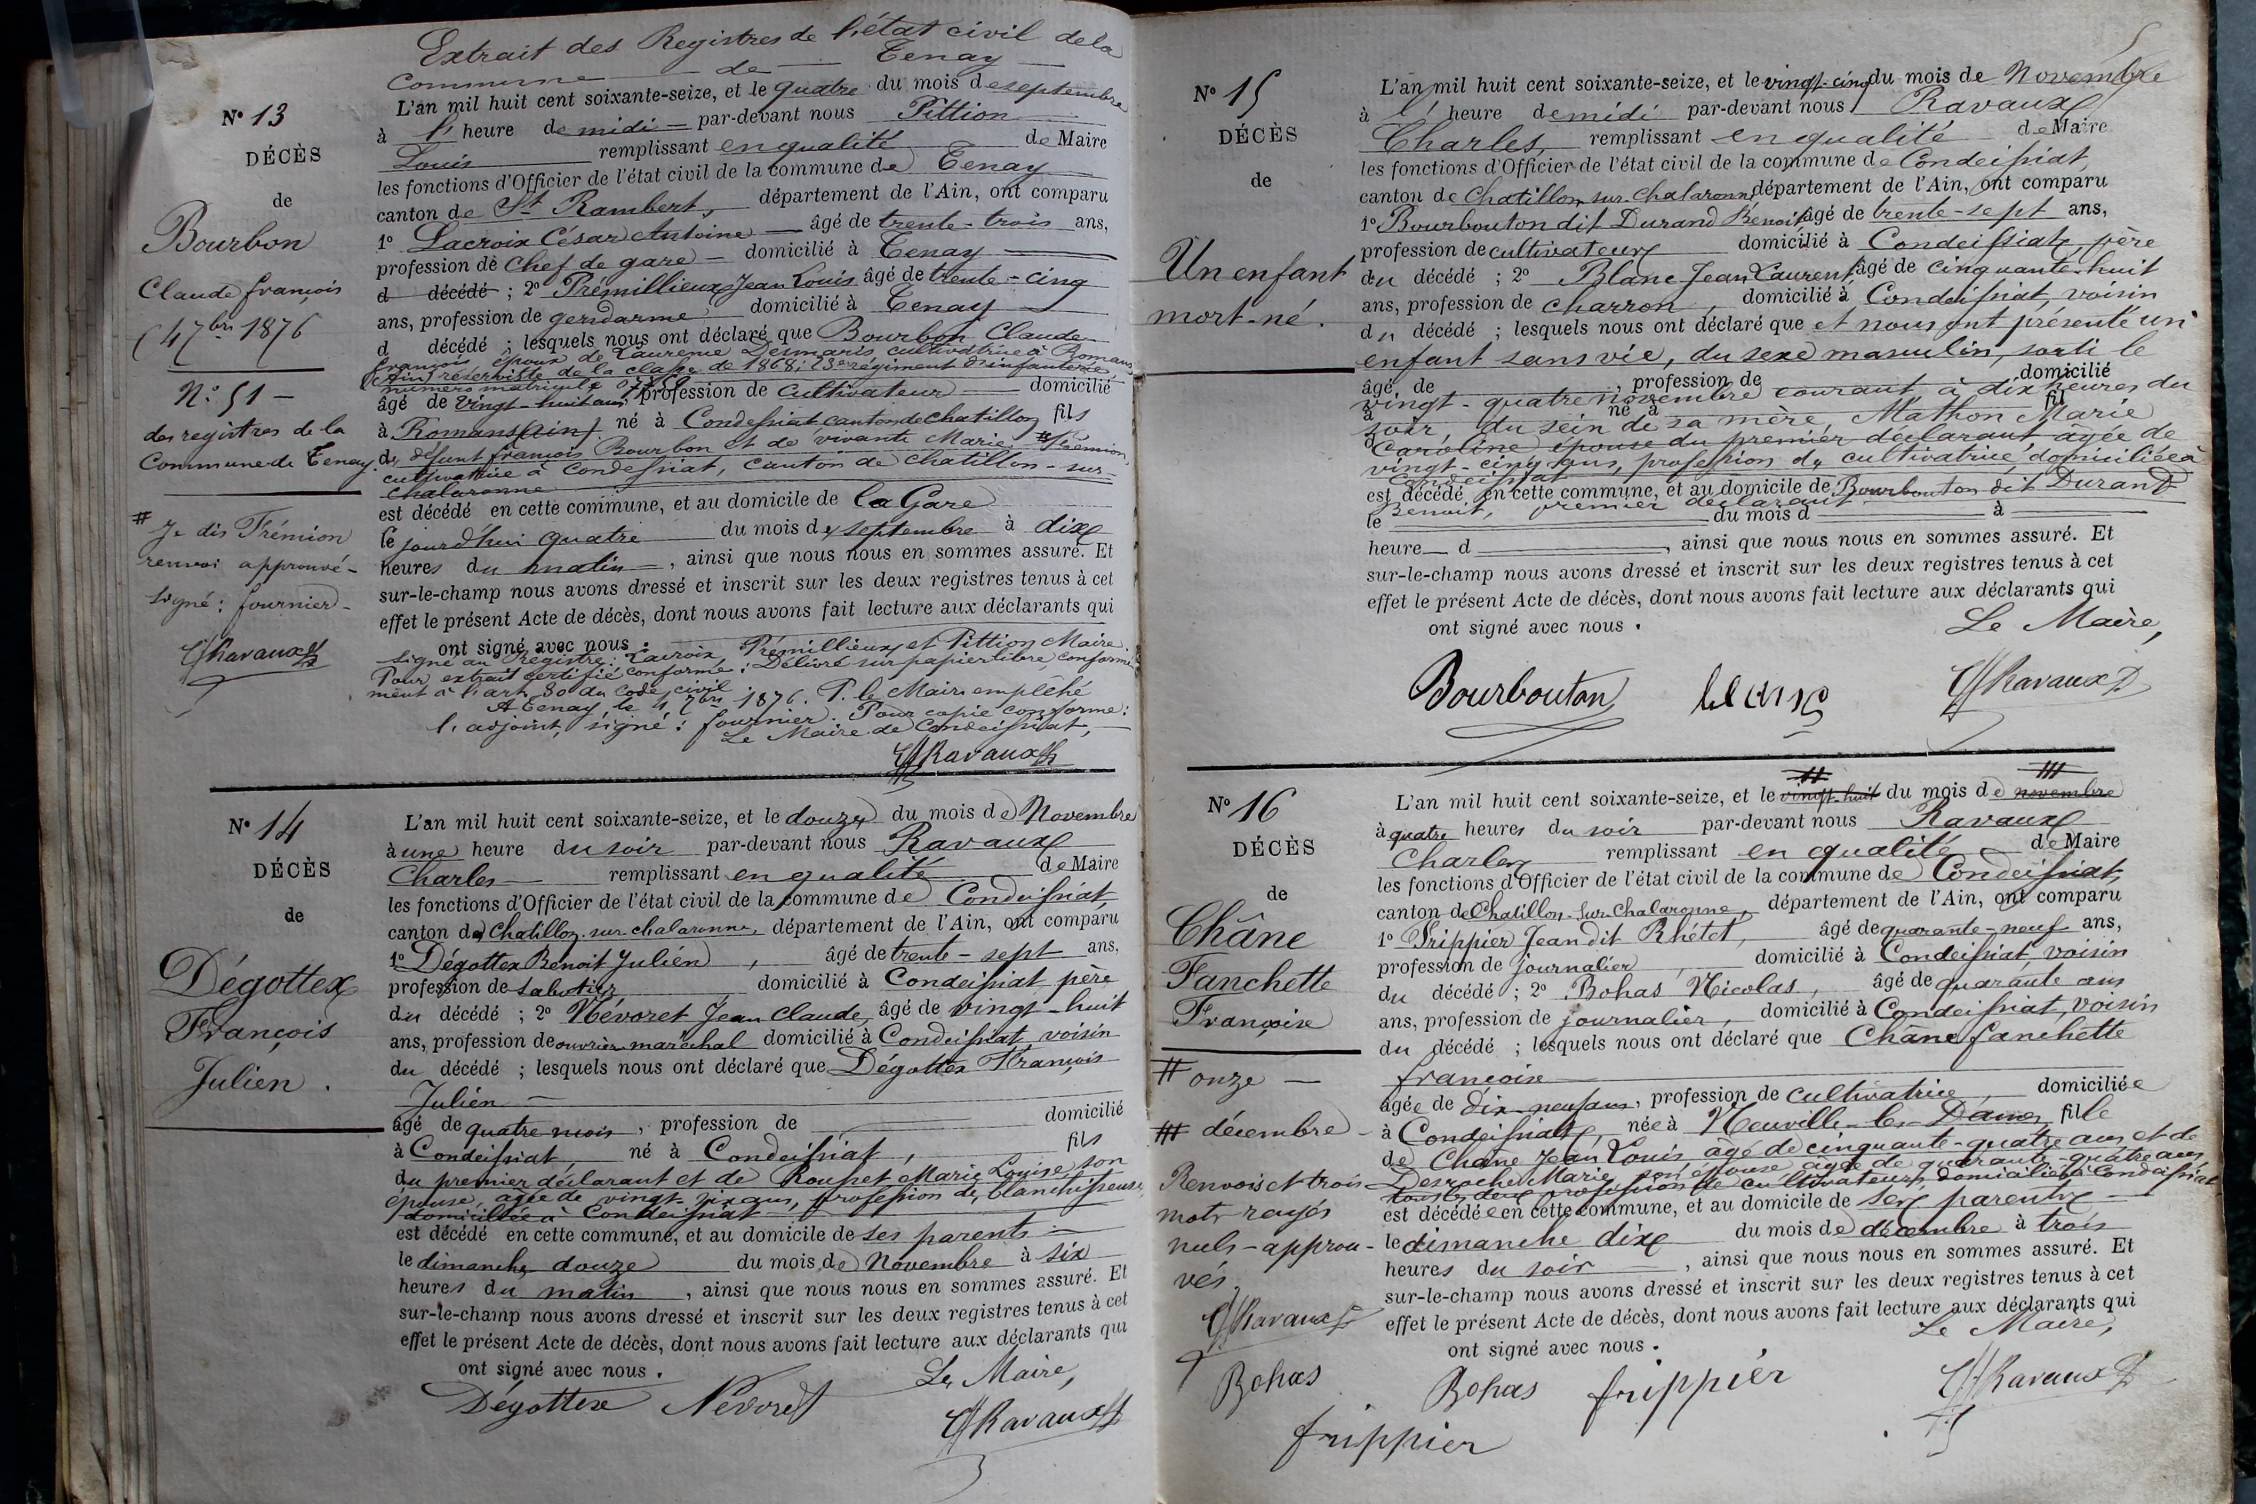 Extrait des Registres de l'état civil de la
Commune de Tenay
N° 13
DÉCÈS
de
Bourbon
Claude françois
(4 7bre 1876
N° 51 -
des registres de la
Commune de Tenay.
# Je dis Frémion
renvoi approuvé -
Signé : fournier -
Ch Ravaux
L'an mil huit cent soixante-seize, et le quatre du mois de septembre
à l' heure de midi par-devant nous Pittion
Louis remplissant en qualité de Maire
les fonctions d'Officier de l'état civil de la commune de Tenay
canton de St Rambert, département de l'Ain, ont comparu
1° Lacroix César Antoine âgé de trente-trois ans,
profession de chef de gare domicilié à Tenay
d décédé ; 2° Prémillieux Jean Louis âgé de trente-cinq
ans, profession de gendarme domicilié à Tenay
d décédé ; lesquels nous ont déclaré que Bourbon Claude
françois époux de Laurence Desmaris cultivatrice à Romans
(Ain) réserviste de la classe de 1868, régiment d'infanterie,
numéro matricule
âgé de vingt-huit ans profession de cultivateur domicilié
à Romans (Ain) né à Condessiat canton de chatillon fils
de défunt françois Bourbon et de vivante Marie # Frémion,
cultivatrice à Condessiat, canton de chatillon-sur-
chalaronne
est décédé en cette commune, et au domicile de la Gare
le jourd'hui quatre du mois de septembre à dix
heures du matin, ainsi que nous nous en sommes assuré. Et
sur-le-champ nous avons dressé et inscrit sur les deux registres tenus à cet
effet le présent Acte de décès, dont nous avons fait lecture aux déclarants qui
ont signé avec nous.
Signé au Registre : Lacroix, Prémillieux et Pittion Maire.
Pour extrait certifié conforme : Délivré sur papier libre, conformé-
ment à l'art. 80 du Code civil
A Tenay, le 4 7bre 1876. P. le Maire empêché
l'adjoint, signé : fournier. Pour copie conforme :
Le Maire de Condeissiat,
Ch Ravaux
N° 14
DÉCÈS
de
Dégottex
François
Julien.
L'an mil huit cent soixante-seize, et le douze du mois de Novembre
à une heure du soir par-devant nous Ravaux
Charles remplissant en qualité de Maire
les fonctions d'Officier de l'état civil de la commune de Condeissiat,
canton de Chatillon-sur-chalaronne, département de l'Ain, ont comparu
1° Dégottex Benoit Julien, âgé de trente-sept ans,
profession de sabotier domicilié à Condeissiat père
du décédé ; 2° Névoret Jean Claude, âgé de vingt-huit
ans, profession de ouvrier maréchal domicilié à Condeissiat, voisin
du décédé ; lesquels nous ont déclaré que Dégottex François
Julien -
âgé de quatre mois, profession de domicilié
à Condeissiat, né à Condeissiat, fils
du premier déclarant et de Rousset Marie Louise son
épouse, âgée de vingt-six ans, profession de blanchisseuse,
domiciliée à Condeissiat
est décédé en cette commune, et au domicile de ses parents
le dimanche douze du mois de Novembre à six
heures du matin, ainsi que nous nous en sommes assuré. Et
sur-le-champ nous avons dressé et inscrit sur les deux registres tenus à cet
effet le présent Acte de décès, dont nous avons fait lecture aux déclarants qui
ont signé avec nous.
Le Maire,
Dégottex Névoret
Ch Ravaux
N° 15
DÉCÈS
de
Un enfant
mort-né.
L'an mil huit cent soixante-seize, et le vingt-cinq du mois de Novembre
à l' heure de midi par-devant nous Ravaux
Charles, remplissant en qualité de Maire
les fonctions d'Officier de l'état civil de la commune de Condeissiat,
canton de Chatillon-sur-chalaronne, département de l'Ain, ont comparu
1° Bourbouton dit Durand Benoit âgé de trente-sept ans,
profession de cultivateur domicilié à Condeissiat, père
du décédé ; 2° Blanc Jean Laurent, âgé de cinquante-huit
ans, profession de charron, domicilié à Condeissiat, voisin
du décédé ; lesquels nous ont déclaré que et nous ont présenté un
enfant sans vie, du sexe masculin, sorti le
âgé de , profession de domicilié
vingt-quatre novembre courant, à dix heures du
à né à fil
soir, du sein de sa mère Mathon Marie
Caroline épouse du premier déclarant âgée de
vingt-cinq ans, profession de cultivatrice domiciliée à
Condeissiat
est décédé en cette commune, et au domicile de Bourbouton dit Durand
Benoit, premier déclarant
le du mois d à
heure d , ainsi que nous nous en sommes assuré. Et
sur-le-champ nous avons dressé et inscrit sur les deux registres tenus à cet
effet le présent Acte de décès, dont nous avons fait lecture aux déclarants qui
ont signé avec nous.
Le Maire,
Bourbouton blanc Ch Ravaux
N° 16
DÉCÈS
de
Châne
Fanchette
Françoise
# onze -
## décembre -
Renvois et trois
mots rayés
nuls - approu-
vés.
Ch Ravaux
Bohas
frippier
L'an mil huit cent soixante-seize, et le vingt-huit du mois de novembre
à quatre heures du soir par-devant nous Ravaux
Charles remplissant en qualité de Maire
les fonctions d'Officier de l'état civil de la commune de Condeissiat,
canton de Chatillon-sur-chalaronne, département de l'Ain, ont comparu
1° Frippier Jean dit Rhétet, âgé de quarante-neuf ans,
profession de journalier, domicilié à Condeissiat, voisin
du décédé ; 2° Bohas Nicolas, âgé de quarante ans
ans, profession de journalier, domicilié à Condeissiat, voisin
du décédé ; lesquels nous ont déclaré que Châne fanchette
françoise
âgée de dix-neuf ans, profession de cultivatrice, domiciliée
à Condeissiat, née à Neuville-les-Dames, fille
de Châne Jean Louis âgé de cinquante-quatre ans et de
Desroche Marie, son épouse âgée de quarante-quatre ans,
tous les deux profession de cultivateurs, domiciliés à Condeissiat
est décédée en cette commune, et au domicile de ses parents
le dimanche dix du mois de décembre à trois
heures du soir, ainsi que nous nous en sommes assuré. Et
sur-le-champ nous avons dressé et inscrit sur les deux registres tenus à cet
effet le présent Acte de décès, dont nous avons fait lecture aux déclarants qui
ont signé avec nous.
Le Maire,
Bohas frippier Ch Ravaux